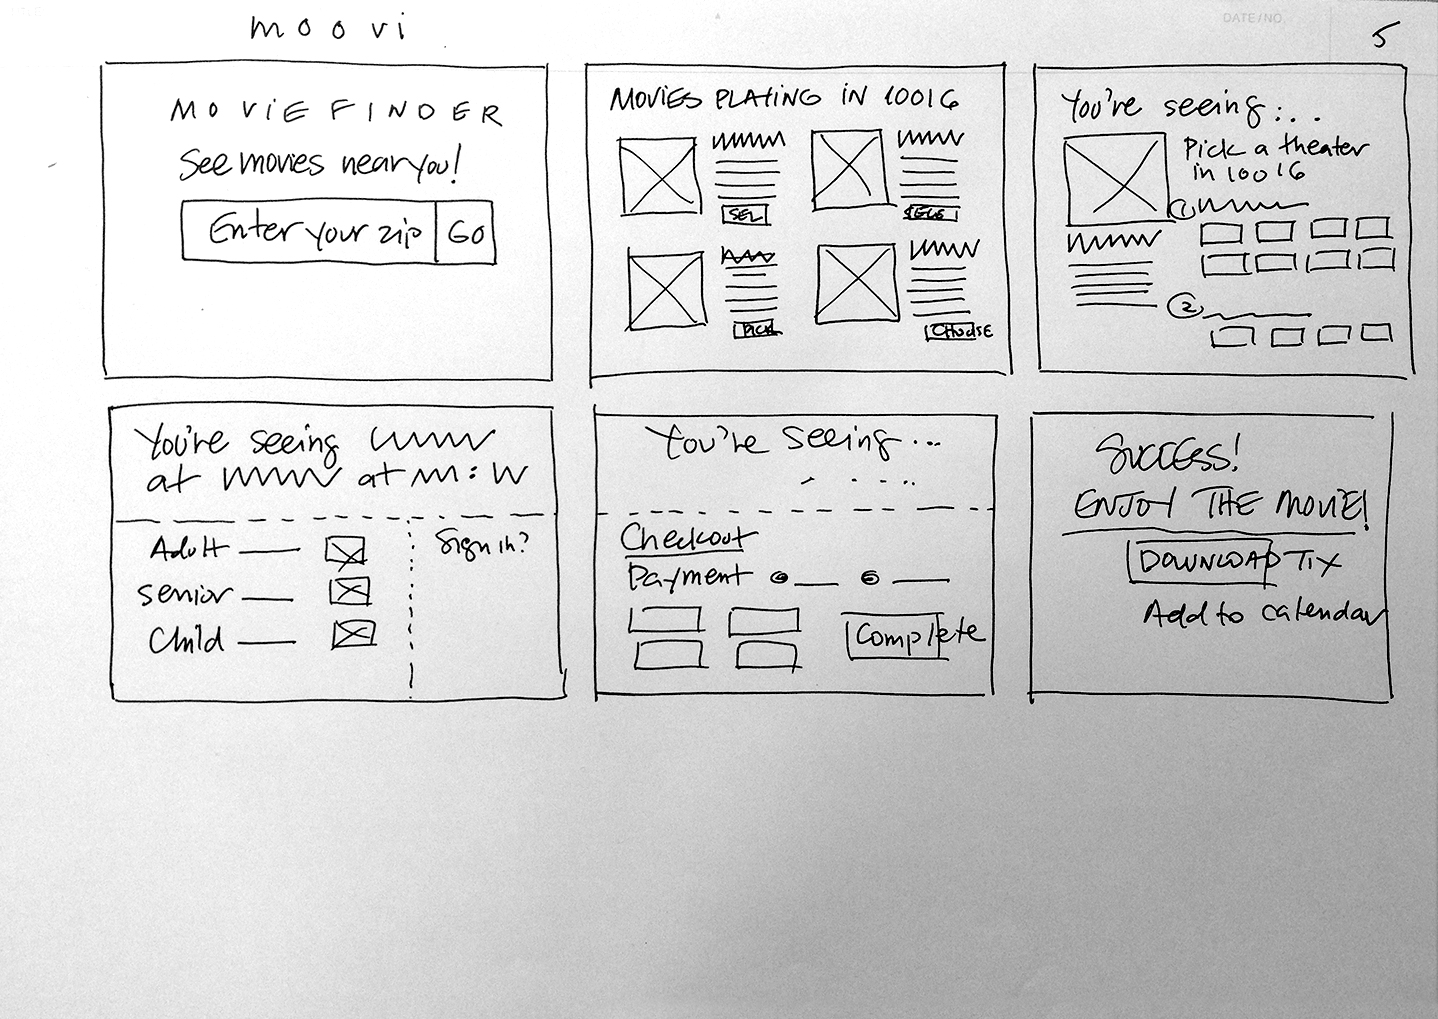 DATE/NO.
5
moovi
MOVIE FINDER
See movies near you!
Enter your zip
Go
MOVIES PLAYING IN 10016
SEL
PICK
CHOOSE
You're seeing...
Pick a theater
in 10016
1
2
You're seeing
at at :
Adult
Senior
Child
Sign in?
You're seeing...
Checkout
Payment
Complete
SUCCESS!
ENJOY THE MOVIE!
DOWNLOAD TIX
Add to calendar